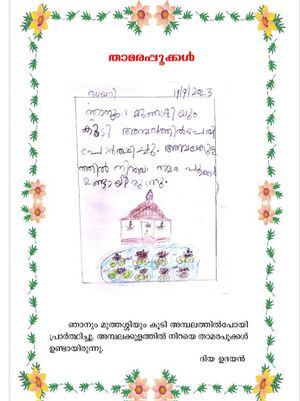 താമരപ്പൂക്കൾ
ഡയറി 11/9/2023
ഞാനും മുത്തശ്ശിയും
കൂടി അമ്പലത്തിൽപോയി
പ്രാർത്ഥിച്ചു. അമ്പലകുള
ത്തിൽ നിറയെ താമര പൂക്കൾ
ഉണ്ടായിരുന്നു.
ഞാനും മുത്തശ്ശിയും കൂടി അമ്പലത്തിൽപോയി
പ്രാർത്ഥിച്ചു. അമ്പലക്കുളത്തിൽ നിറയെ താമരപൂക്കൾ
ഉണ്ടായിരുന്നു.
ദിയ ഉദയൻ